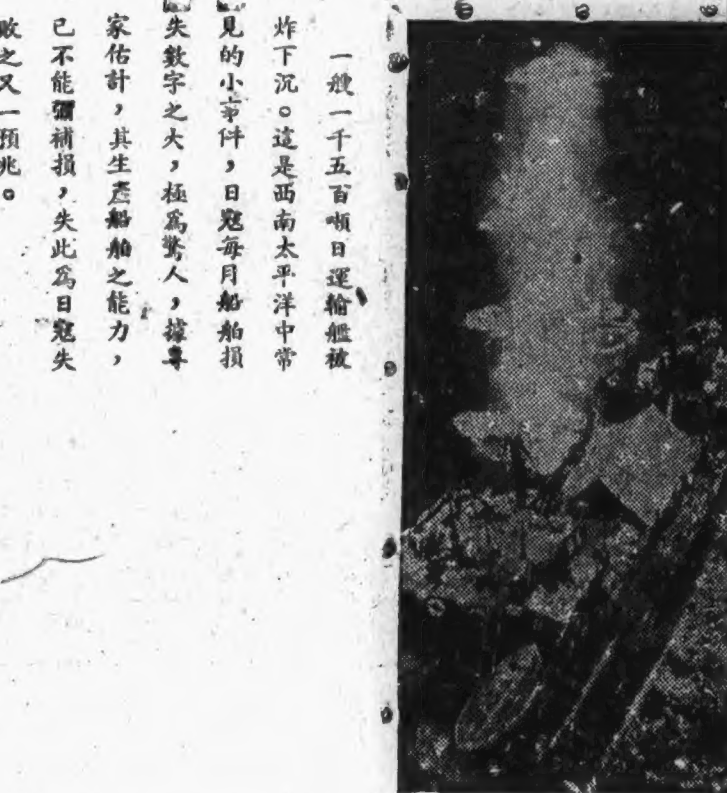 一艘一千五百噸日運輸艦被
炸下沉。這是西南太平洋中常
見的小事件，日寇每月船舶損
失數字之大，極爲驚人，據專
家估計，其生產船舶之能力，
已不能彌補損，失此爲日寇失
敗之又一預兆。